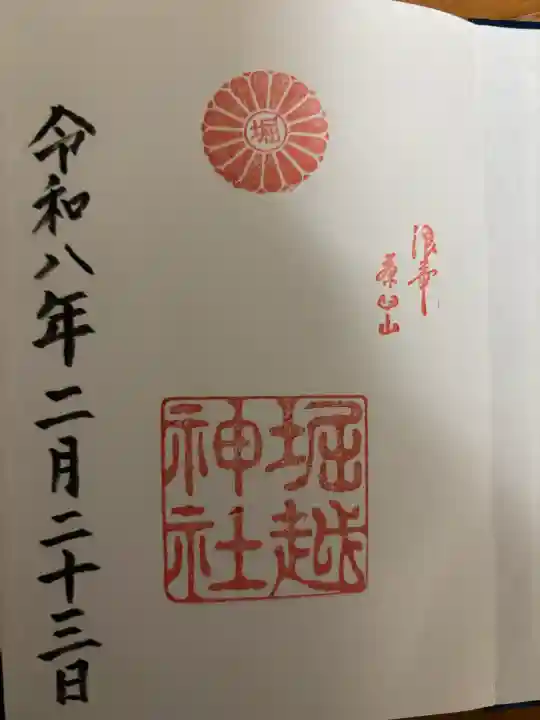 堀
浪華
茶臼山
堀越
神社
令和八年二月二十三日